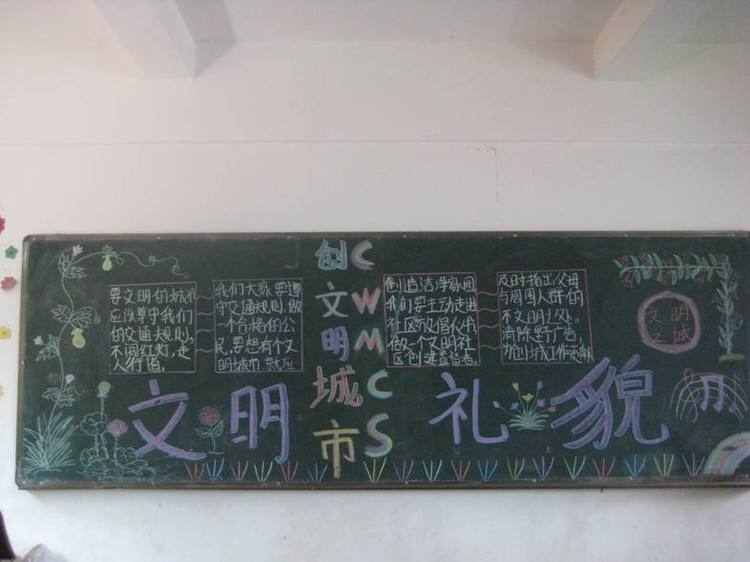 要文明的城市
应该遵守我们
的交通规则,
不闯红灯,走
人行道。
我们大家要遵
守交通规则,做
一个合格的公
民,要想有个文
明城市
创文明城市
CWMCS
创造洁净家园
我们要主动走进
社区
做一个文明社
区创建监督者。
及时指出父母
与周围人群的
不文明之处。
清除野广告
为创城工作
文明
之城
文明
礼貌
月